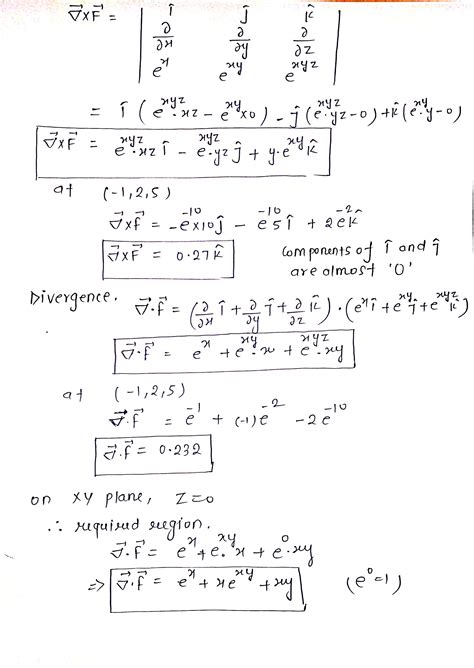 ∇⃗×F⃗ = | î ĵ k̂
∂/∂x ∂/∂y ∂/∂z
e^x e^xy e^xyz |
= î (e^xyz·xz − e^xy×0) − ĵ(e^xyz·yz−0) + k̂(e^xy·y−0)
∇⃗×F⃗ = e^xyz·xz î − e^xyz·yz ĵ + y·e^xy k̂
at (-1,2,5)
∇⃗×F⃗ = −e^-10×10ĵ − e^-10 5î + 2e^-2 k̂
∇⃗×F⃗ = 0.27k̂ components of î and ĵ
are almost '0'
Divergence. ∇⃗·F⃗ = (∂/∂x î + ∂/∂y ĵ + ∂/∂z k̂)·(e^x î + e^xy ĵ + e^xyz k̂)
∇⃗·F⃗ = e^x + e^xy·x + e^xyz·xy
at (-1,2,5)
∇⃗·F⃗ = e^-1 + (-1)e^-2 − 2e^-10
∇⃗·F⃗ = 0.232
on XY plane, Z=0
∴ required region.
∇⃗·F⃗ = e^x + e^xy·x + e^0·xy
⇒ ∇⃗·F⃗ = e^x + xe^xy + xy (e^0=1)